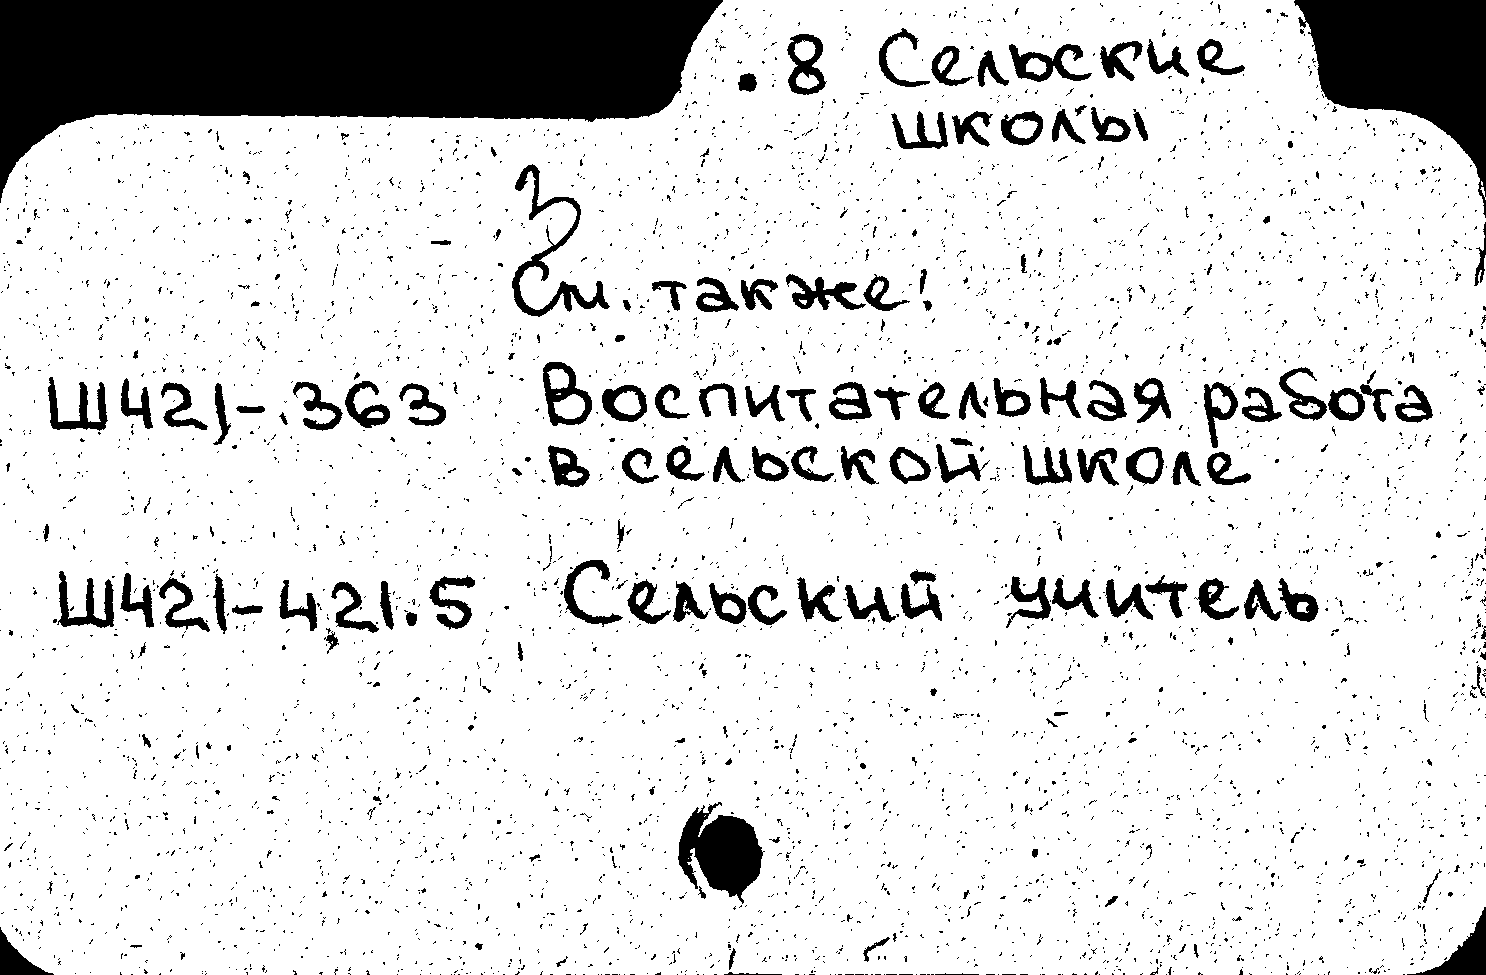 .8 Сельские
школы
З
См. также:
Ш421-363 Воспитательная работа
в сельской школе
Ш421-421.5 Сельский учитель